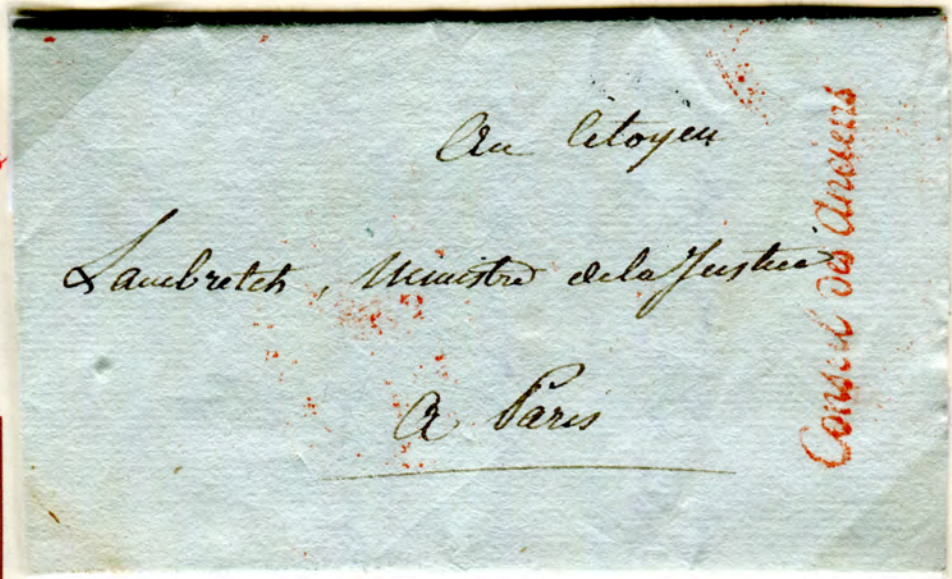 Au Citoyen
Lambretch, Ministre de la Justice
A Paris
Conseil des Anciens